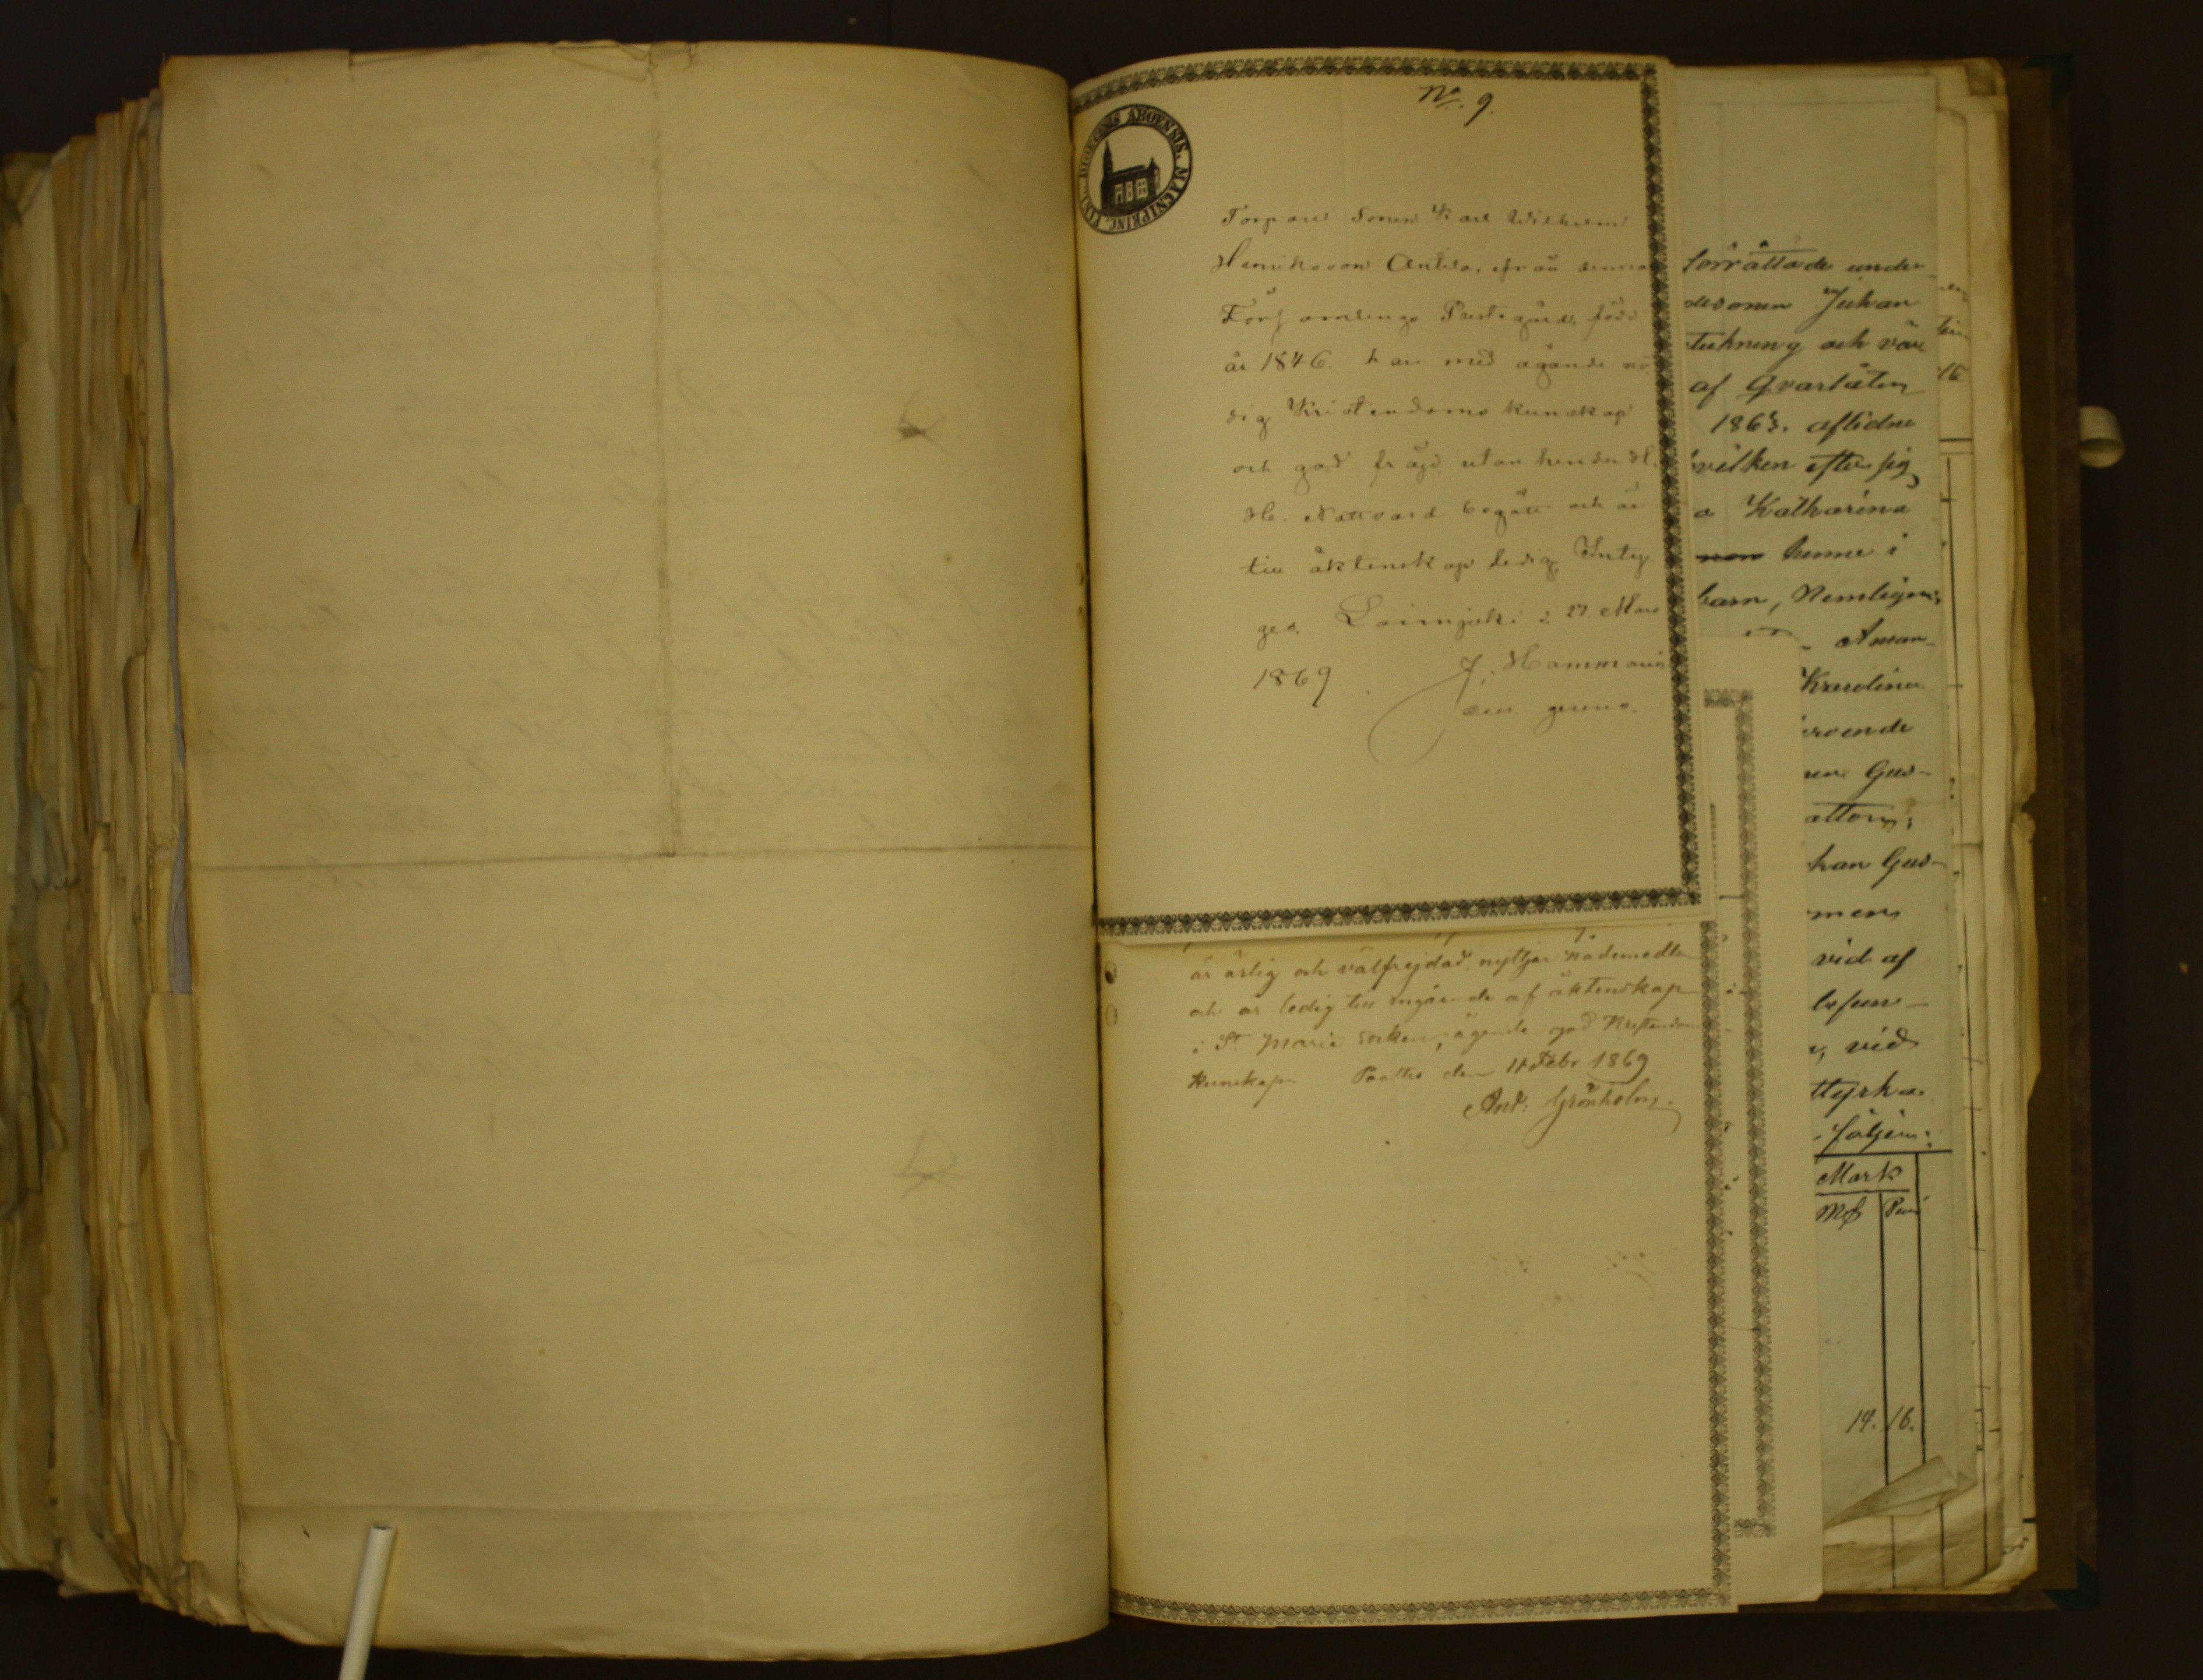 No. 9.
DIOECESIS ABOENSIS. MAGNI PRINC. FINL.
Torpare Sonen Karl Wilhelm
Henriksson Antila, från denna
Församlings Prestgård, född
år 1846. har med ägande nö-
dig Kristendoms kunskap
och god fräjd utan hinder H.
H. Nattvard begått och är
till äktenskap ledig, Intyg
ges. Loimijoki i 27 Mars
1869. J. Hammarin
är ärlig och välfrejdad, nyttjar Nådemedlen
och är ledig till ingående af äktenskap
i St Marie Socken, ägande god Kristendoms
kunskap. Paattis den 11 Febr 1869
And: Grönholm.
förrättade under
desonen Juhan
teckning och vär
af Qvarlåten
1863. aflidne
hvilken efter sig
a Katharina
henne i
barn, Nemligen;
Aman-
Karolina
roende
Gus-
attorn;
han Gus-
men
vid af
befun-
, vid
följen:
Mark
Mf Pen
14. 16.